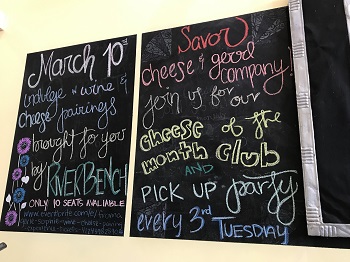 March 10st
indulge in wine &
cheese pairings
brought to you
by RIVERBENCH
ONLY 10 SEATS AVALIABLE
www.eventbrite.com/e/
Savor
cheese & good
company!
join us for our
cheese of the
month club
AND
PICK UP party
every 3rd
TUESDAY